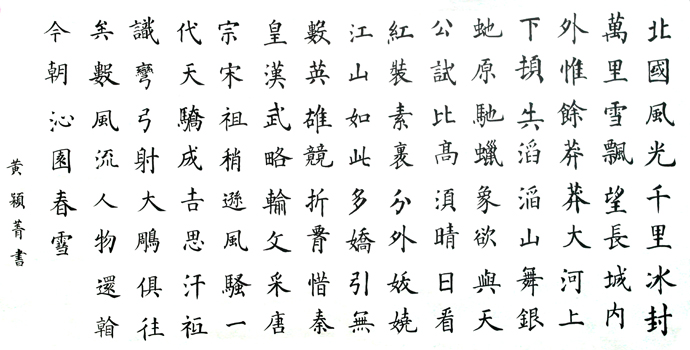 北國風光千里冰封
萬里雪飄望長城內
外惟餘莽莽大河上
下頓失滔滔山舞銀
虵原馳蠟象欲與天
公試比高須晴日看
紅裝素裹分外妖嬈
江山如此多嬌引無
數英雄競折惜秦
皇漢武略輸文采唐
宗宋祖稍遜風騷一
代天驕成吉思汗祗
識彎弓射大鵰俱往
矣數風流人物還
今朝沁園春雪
黃穎菁書